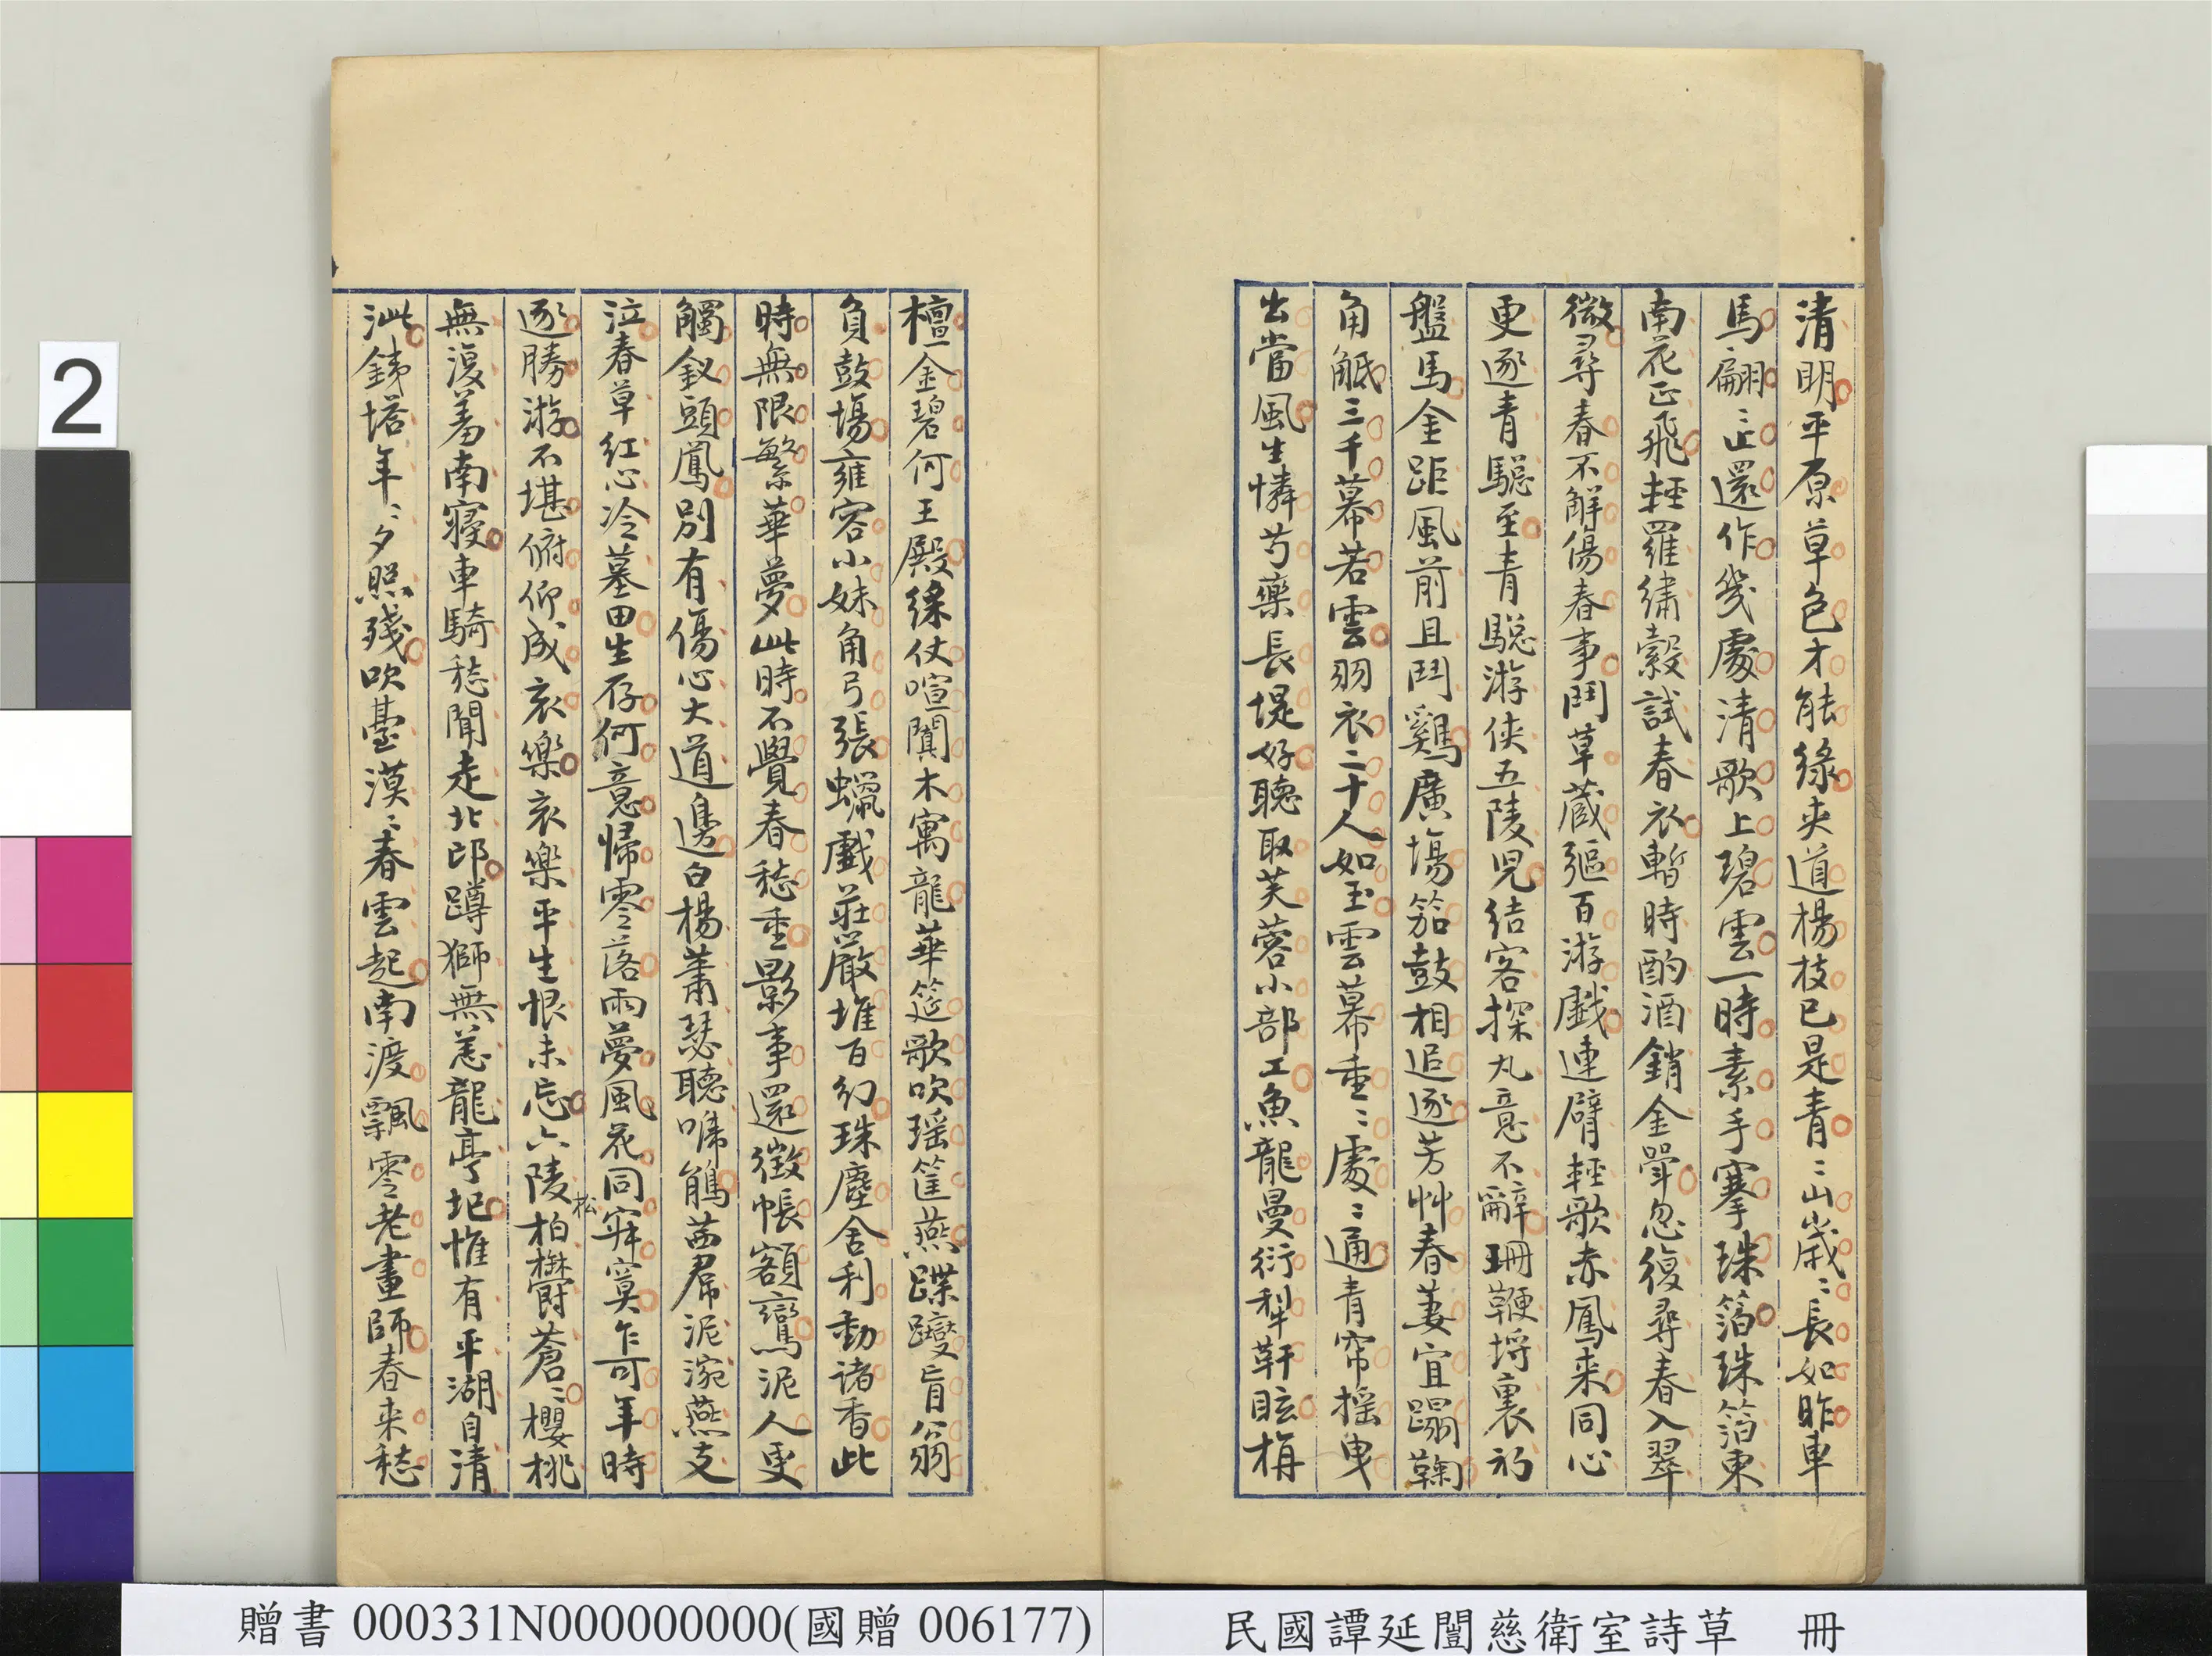 清明平原草色才能綠夾道楊枝已是青〻山歲〻長如昨車
馬翩〻止還作幾處清歌上碧雲一時素手搴珠箔珠箔東
南花正飛輕羅繡縠試春衣暫時酌酒銷金斝忽復尋春入翠
微尋春不解傷春事鬥草蔵彄百游戲連臂輕歌赤鳳来同心
更逐青驄至青驄游俠五陵児結客探丸意不辭珊鞭埒裏初
盤馬金距風前且鬥鷄廣塲笳鼓相追逐芳艸春萋宜蹋鞠
角觝三千幕若雲羽衣二十人如玉雲幕垂〻處〻通青帘摇曳
出當風生憐芍藥長堤好聽取芙蓉小部工魚龍曼衍犁靬眩栴
檀金碧何王殿綵仗喧闐木寓龍華筵歌吹瑶筐燕蹀躞盲翁
負鼓塲雍容小妹角弓張蠟戲莊嚴堆百幻珠塵舍利動诸香此
時無限繁華夢此時不覺春愁重影事還徴帳額鸞泥人更
觸釵頭鳳別有傷心大道邊白楊蕭瑟聽啼鵑茜帬泥涴燕支
泣春草紅心冷墓田生存何意歸零落雨夢風花同寂寞乍可年時
逐勝游不堪俯仰成哀樂哀樂平生恨未忘六陵松柏欝蒼〻櫻桃
無復羞南寢車騎愁聞走北邙蹲獅無恙龍亭圯惟有平湖自清
泚銕塔年〻夕照殘吹臺漠〻春雲起南渡飄零老畫師春来愁
2
贈書 000331N000000000(國贈 006177)
民國譚延闓慈衛室詩草 冊